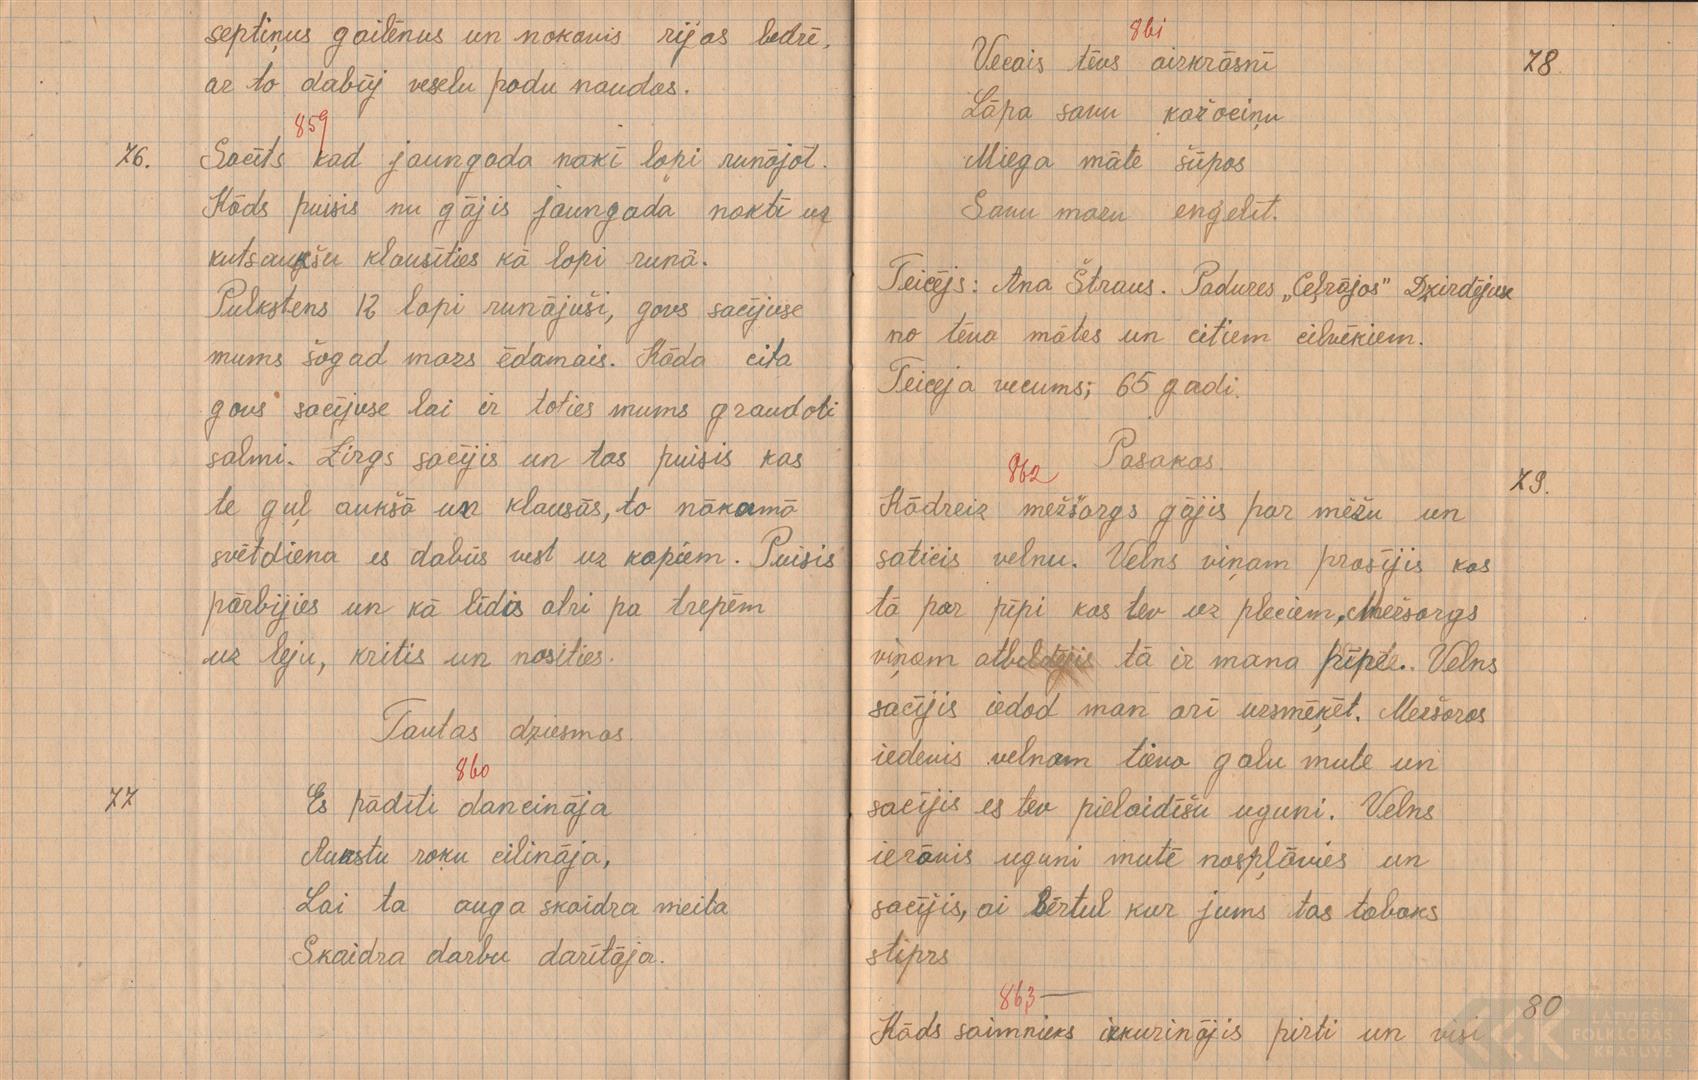 septiņus gailēnus un nokavis rijas bedrē,
ar to dabūj veselu podu naudas.
859
76. Sacīts kad jaungada nakī lopi runājot.
Kāds puisis nu gājis jaungada naktī uz
kutsaukšu klausīties kā lopi runā.
Pulkstens 12 lopi runājuši, govs sacījuse
mums šogad mazs ēdamais. Kāda cita
govs sacījuse lai ir toties mums graudoti
salmi. Zirgs sacījis un tas puisis kas
te guļ aukšā un klausās, to nākamā
svētdiena es dabūs vest uz kapiem. Puisis
pārbijies un kā līdis atri pa trepēm
uz leju, kritis un nosities.
Tautas dziesmas.
860
77 Es pādīti dancināja
Aukstu roku cilināja,
Lai ta auga skaidra meita
Skaidra darbu darītāja.
861
Vecais tēvs aizkrāsnī 78.
Lāpa savu kažociņu
Miega māte šūpos
Savu mazu enģelīt.
Teicējs: Ana Štraus. Padures „Ceļrājos" Dzirdējuse
no tēva mātes un citiem cilvēkiem.
Teicēja vecums; 65 gadi.
Pasakas.
862
79.
Kādreiz mežšargs gājis par mežu un
saticis velnu. Velns viņam prasījis kas
tā par pīpi kas tev uz pleciem, Mežsargs
viņam atbildējis tā ir mana pīpe. Velns
sacījis iedod man arī uzsmēķēt. Mežsargs
iedevis velnam tievo galu mute un
sacījis es tev pielaidīšu uguni. Velns
ierāvis uguni mutē nospļāvies un
sacījis, ai bērtul kur jums tas tabaks
stiprs
863
80
Kāds saimnieks izkurinājis pirti un visi
LATVIEŠU
FOLKLORAS
KRĀTUVE